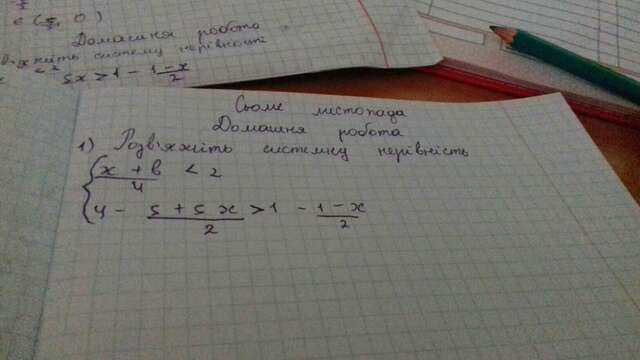 с (π/2, 0)
Домашня робота
в'яжіть систему нерівності
< 2
5x > 1 - 1-x/2
Сьоме листопада
Домашня робота
1) Розв'яжіть системну нерівність
x + 6/4 < 2
4 - 5 + 5x/2 > 1 - 1-x/2